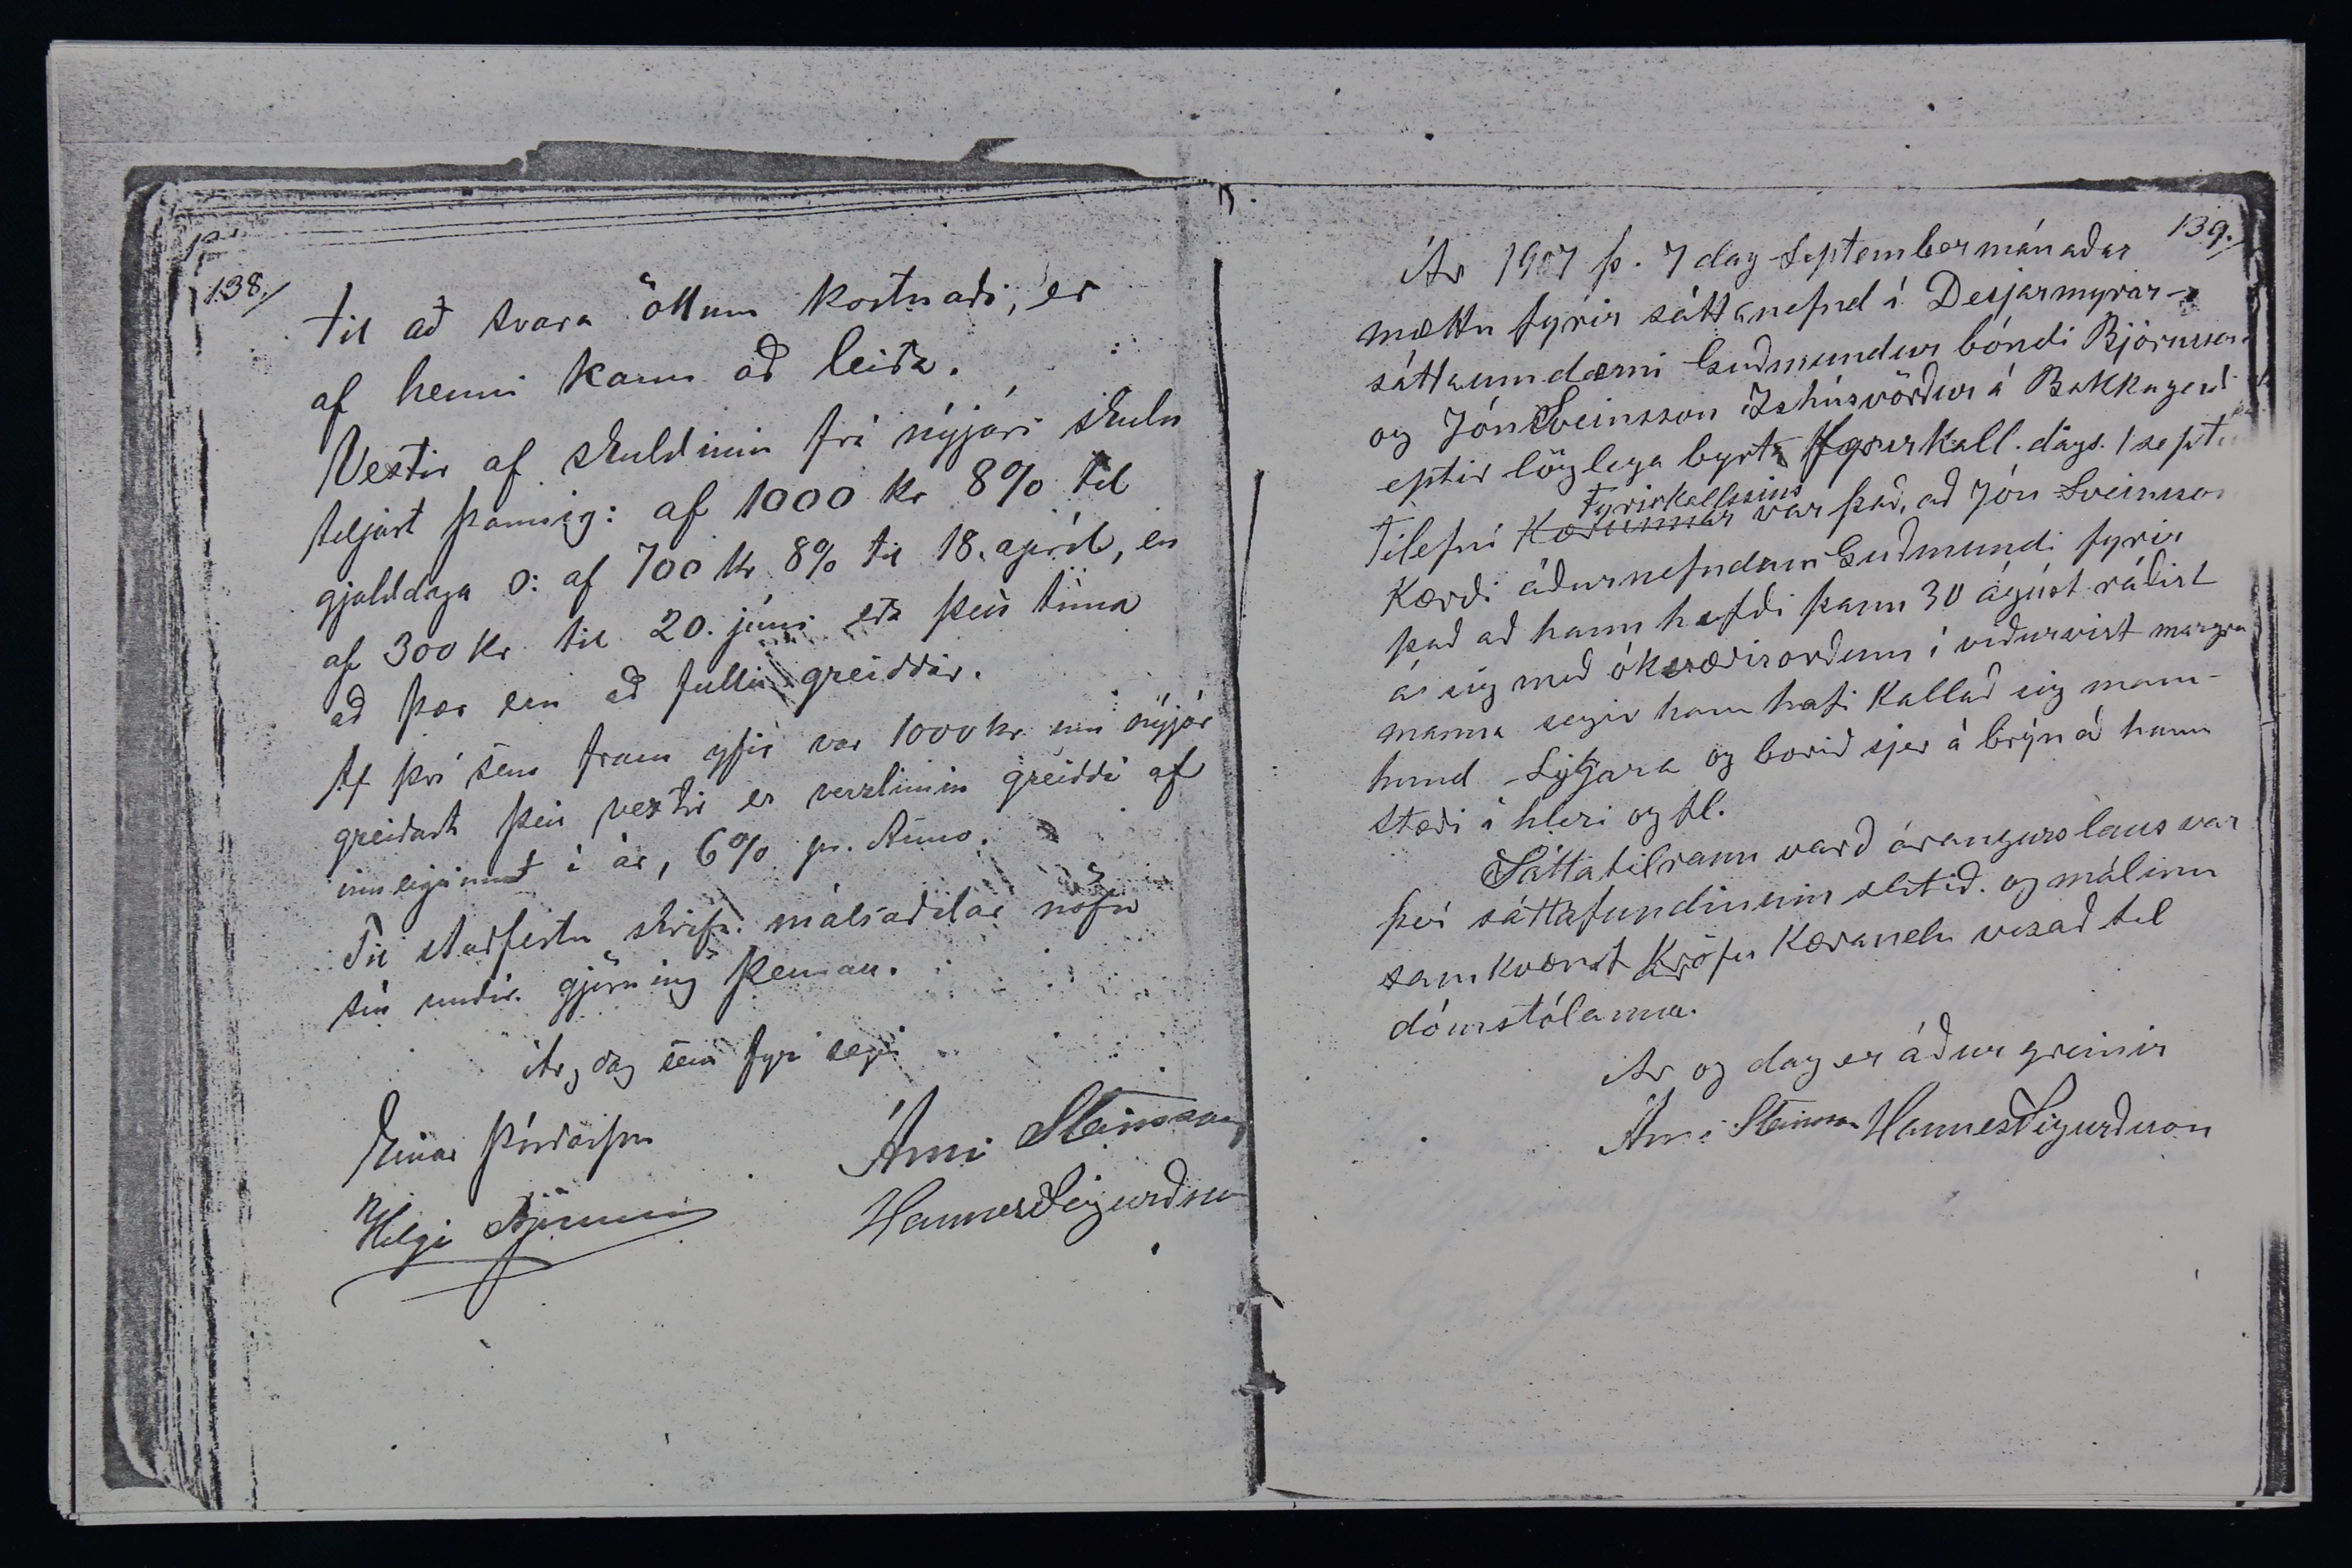 138./
til að svara öllum kostnaði, er
af henni kann að leiða.
Vextir af skuldinni frá nýjári skulu
teljast þannig: af 1000 kr 8% til
gjalddaga o: af 700 kr 8% til 18. apríl, en
af 300 kr til 20. júni eða þess tíma
að þær eru að fullu greiddar.
Af því sem fram yfir var 1000 kr um nýjár
greiðast þeir vextir er verzlunin greiddi af
inneignum í ár, 6% pr. Anno.
Til staðfestu skrifa málsaðilar nöfn
sín undir gjörning þennan.
Ár, dag sem fyr segir
Einar Þórðarson
Helgi Björnsson
Árni Steinsson
Hannes Sigurðsson
139./
Ár 1907 þ. 7 dag Septembermánaðar
mættu fyrir sáttanefnd í Desjarmýrar-
sáttaumdæmi Guðmundur bóndi Björnsson
og Jón Sveinsson Ishúsvörður á Bakkagerði
eptir löglega byrta fyrirkall. dags. 1 septbr
Fyrirkallsins
Tilefni Kærunnar var það, að Jón Sveinsson
Kærði áðurnefndum Guðmundi fyrir
það að hann hefði þann 30 ágúst ráðist
á sig með ókvæðisorðum í viðurvist margra
manna segir hann hafi Kallað sig mann-
hund Lygara og borið sjer á brýn að hann
stæði á hleri og fl.
Sáttatilraun varð árangurslaus var
því sáttafundinum slitið. og málinu
samkvæmt Kröfu Kæranda vísað til
dómstólanna.
Ar og dag er áður greinir
Árni Steinsson Hannes Sigurðsson